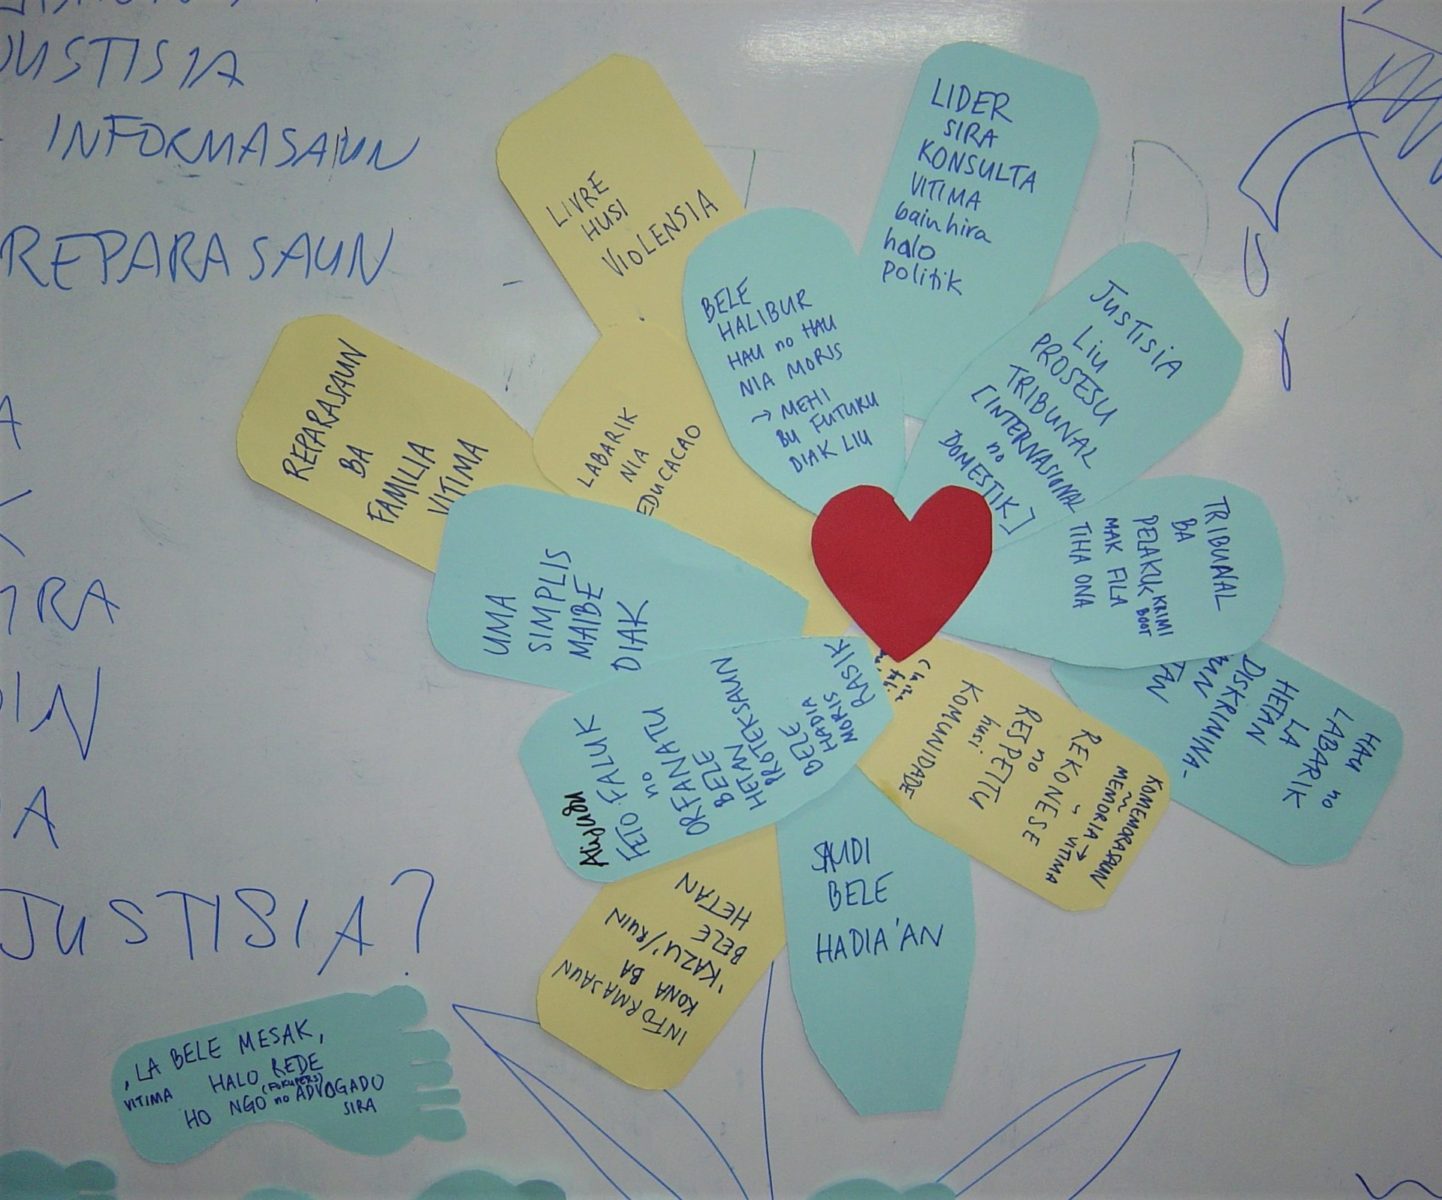 JUSTISIA
INFORMASAUN
REPARASAUN
JUSTISIA?
LIVRE
HUSI
VIOLENSIA
LIDER
SIRA
KONSULTA
VITIMA
bainhira
halo
politik
BELE
HALIBUR
HAU no HAU
NIA MORIS
→ MEHI
BU FUTURU
DIAK LIU
JUSTISIA
LIU
PROSESU
TRIBUNAL
[INTERNASIONAL
no
DOMESTIK]
REPARASAUN
BA
FAMILIA
VITIMA
LABARIK
NIA
EDUCACAO
TRIBUNAL
BA
PELAKUK KRIMI
BOOT
MAK FILA
TIHA ONA
UMA
SIMPLIS
MAIBE
DIAK
HAU no
LABARIK
LA
HETAN
DISKRIMINA-
KOMEMORASAUN
MEMORIA → VITIMA
REKONESE
no
RESPETTU
husi
KOMUNIDADE
FETO FALUK
no
ORFANATU
BELE
HETAN
PROTEKSAUN
BELE
HADIA
MORIS
RASIK
SAUDI
BELE
HADIA'AN
INFORMASAUN
KONA BA
'KAZU'/RUIN
BELE
HETAN
, LA BELE MESAK,
VITIMA HALO REDE
(FOKUPERS)
HO NGO no ADVOGADO
SIRA